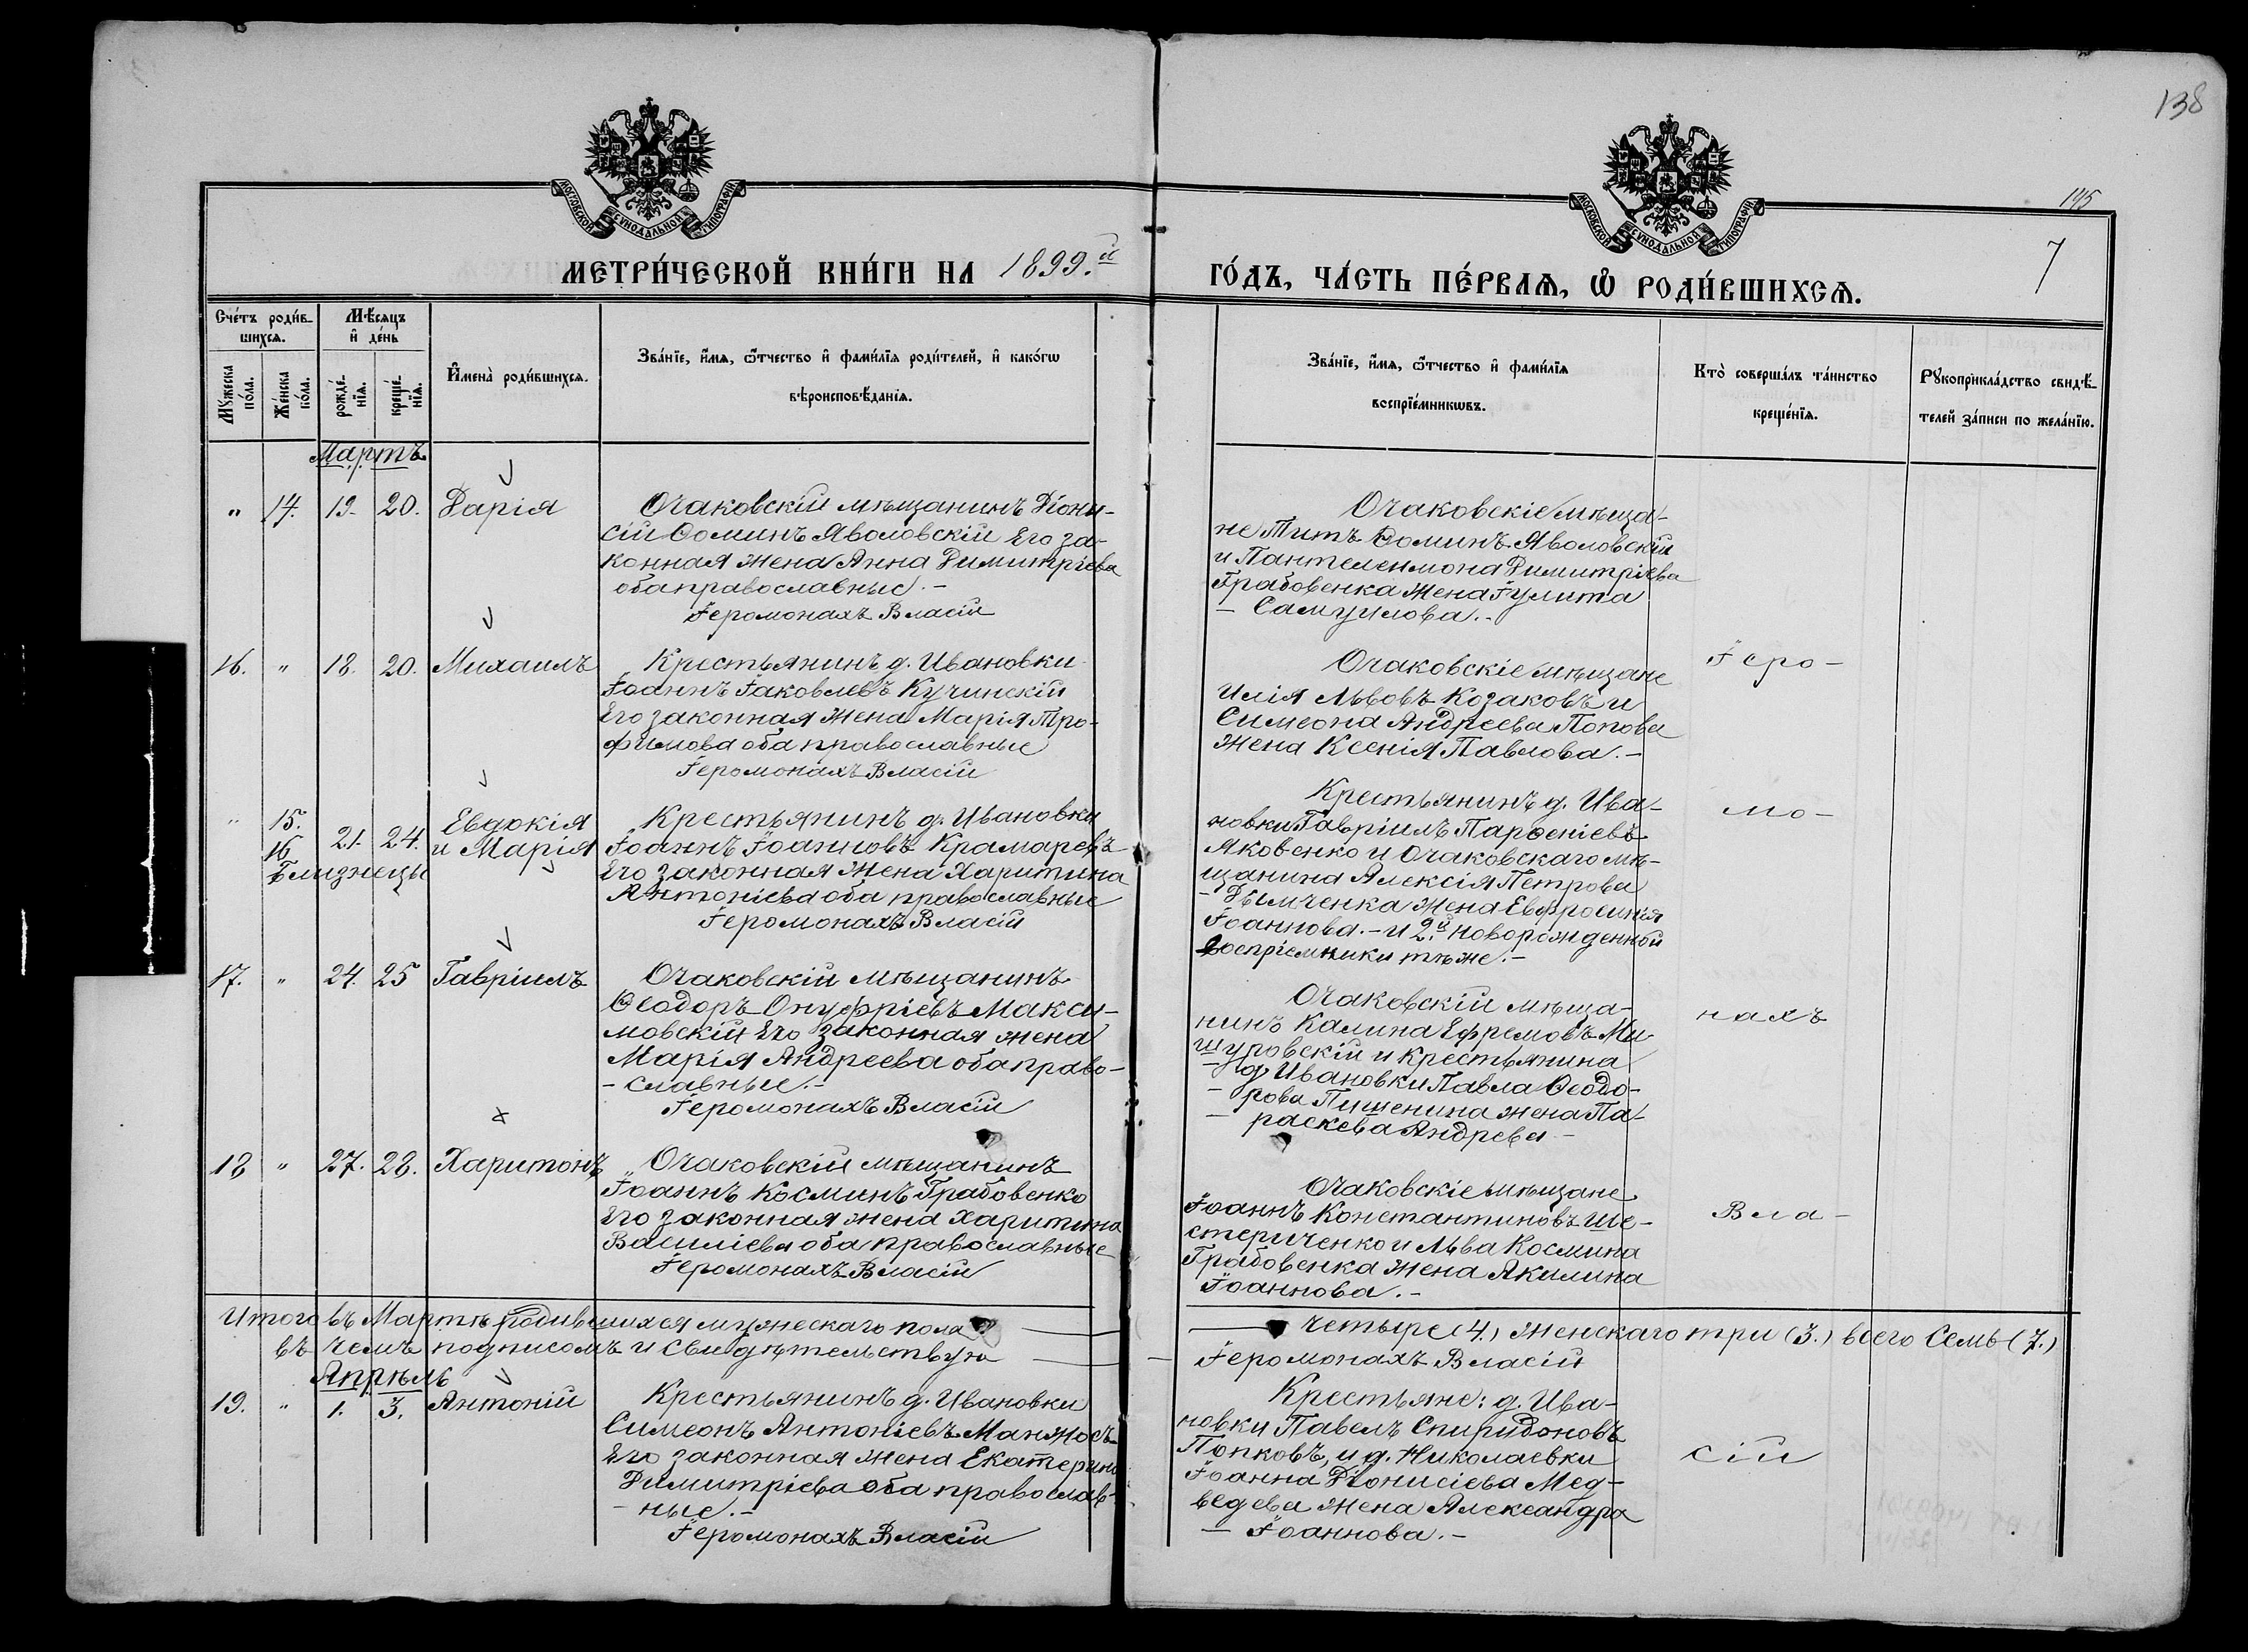 138
145
7
МОСКОВСКОЙ СѴНОДАЛЬНОЙ ТИПОГРАФІИ
МОСКОВСКОЙ СѴНОДАЛЬНОЙ ТИПОГРАФІИ
МЕТРИ́ЧЕСКОЙ КНИ́ГИ НА 1899.й
ГО́ДЪ, ЧА́СТЬ ПЕ́РВАѦ, Ѽ РОДИ́ВШИХСѦ.
Сче́тъ роди́в-
шихсѧ.
Мѣ́сяцъ
и҆ де́нь
Мꙋжеска по́ла.
Же́нска по́ла.
рожде́-нїѧ.
креще́-нїѧ.
И҆мена̀ роди́вшихсѧ.
Зва́нїе, и҆́мѧ, ѻ҆́тчество и҆ фами́лїѧ роди́телей, и҆ како́гѡ
вѣроисповѣ́данїѧ.
Зва́нїе, и҆́мѧ, ѻ҆́тчество и҆ фами́лїѧ
воспрїе́мникѡвъ.
Кто̀ соверша́лъ та́инство
креще́нїѧ.
Рꙋкоприкла́дство свидѣ́-
телей за́писи по жела́нїю.
Мартъ.
" 14. 19. 20. Дарія
Очаковскій мѣщанинъ Діони-
сій Ѳоминъ Яволовскій Его за-
конная жена Анна Димитріева
оба православные. -
Іеромонахъ Власій
Очаковскіе мѣща-
не Титъ Ѳоминъ Яволовскій
и Пантелеимона Димитріева
Грабовенка жена Іулита
- Самуилова. -
16. " 18. 20. Михаилъ
Крестьянинъ д. Ивановки
Іоаннъ Іаковлевъ Кучинскій
Его законная жена Марія Тро-
фимова оба православные
Іеромонахъ Власій
Очаковскіе мѣщане
Илія Львовъ Козаковъ и
Симеона Андреева Попова
жена Ксенія Павлова. -
Іеро-
" 15. 16 21. 24. Евдокія
и Марія
Близнецы
Крестьянинъ д. Ивановки
Іоаннъ Іоанновъ Крамаревъ
Его законная жена Харитина
Антоніева оба православные
Іеромонахъ Власій
Крестьянинъ д. Ива-
новки Гавріилъ Парѳеніевъ
Яковенко и Очаковскаго мѣ-
щанина Алексія Петрова
- Дѣмченка жена Евфросинія
Іоаннова. - и 2й новорожденной
воспріемники тѣже. -
мо-
17. " 24. 25 Гавріилъ
Очаковскій мѣщанинъ
Ѳеодоръ Онуфріевъ Макси-
мовскій Его законная жена
Марія Андреева оба право-
- славные. -
Іеромонахъ Власій
Очаковскій мѣща-
нинъ Калина Ефремовъ Ми-
шуровскій и крестьянина
- д. Ивановки Павла Ѳеодо-
- рова Пишенина жена Па-
- раскева Андреева -
нахъ
18 " 27. 28. Харитонъ
Очаковскій мѣщанинъ
Іоаннъ Косминъ Грабовенко
Его законная жена Харитина
Василіева оба православные
Іеромонахъ Власій
Очаковскіе мѣщане
Іоаннъ Константиновъ Ше-
стериченко и Льва Космина
Грабовенка жена Акилина
Іоаннова. -
Вла-
Итого въ Мартѣ родившихся мужескаго пола
четыре (4.) женскаго три (3.) всего Семь (7.)
въ чемъ подписомъ и свидѣтельствую
Іеромонахъ Власій
Апрѣль
19. " 1. 3. Антоній
Крестьянинъ д. Ивановки
Симеонъ Антоніевъ Манжосъ
Его законная жена Екатерина
Димитріева оба православ-
- ные. -
Іеромонахъ Власій
Крестьяне: д. Ива-
новки Павелъ Спиридоновъ
Попковъ, и д. Николаевки
Іоанна Діонисіева Мед-
ведева жена Александра
- Іоаннова. -
сій